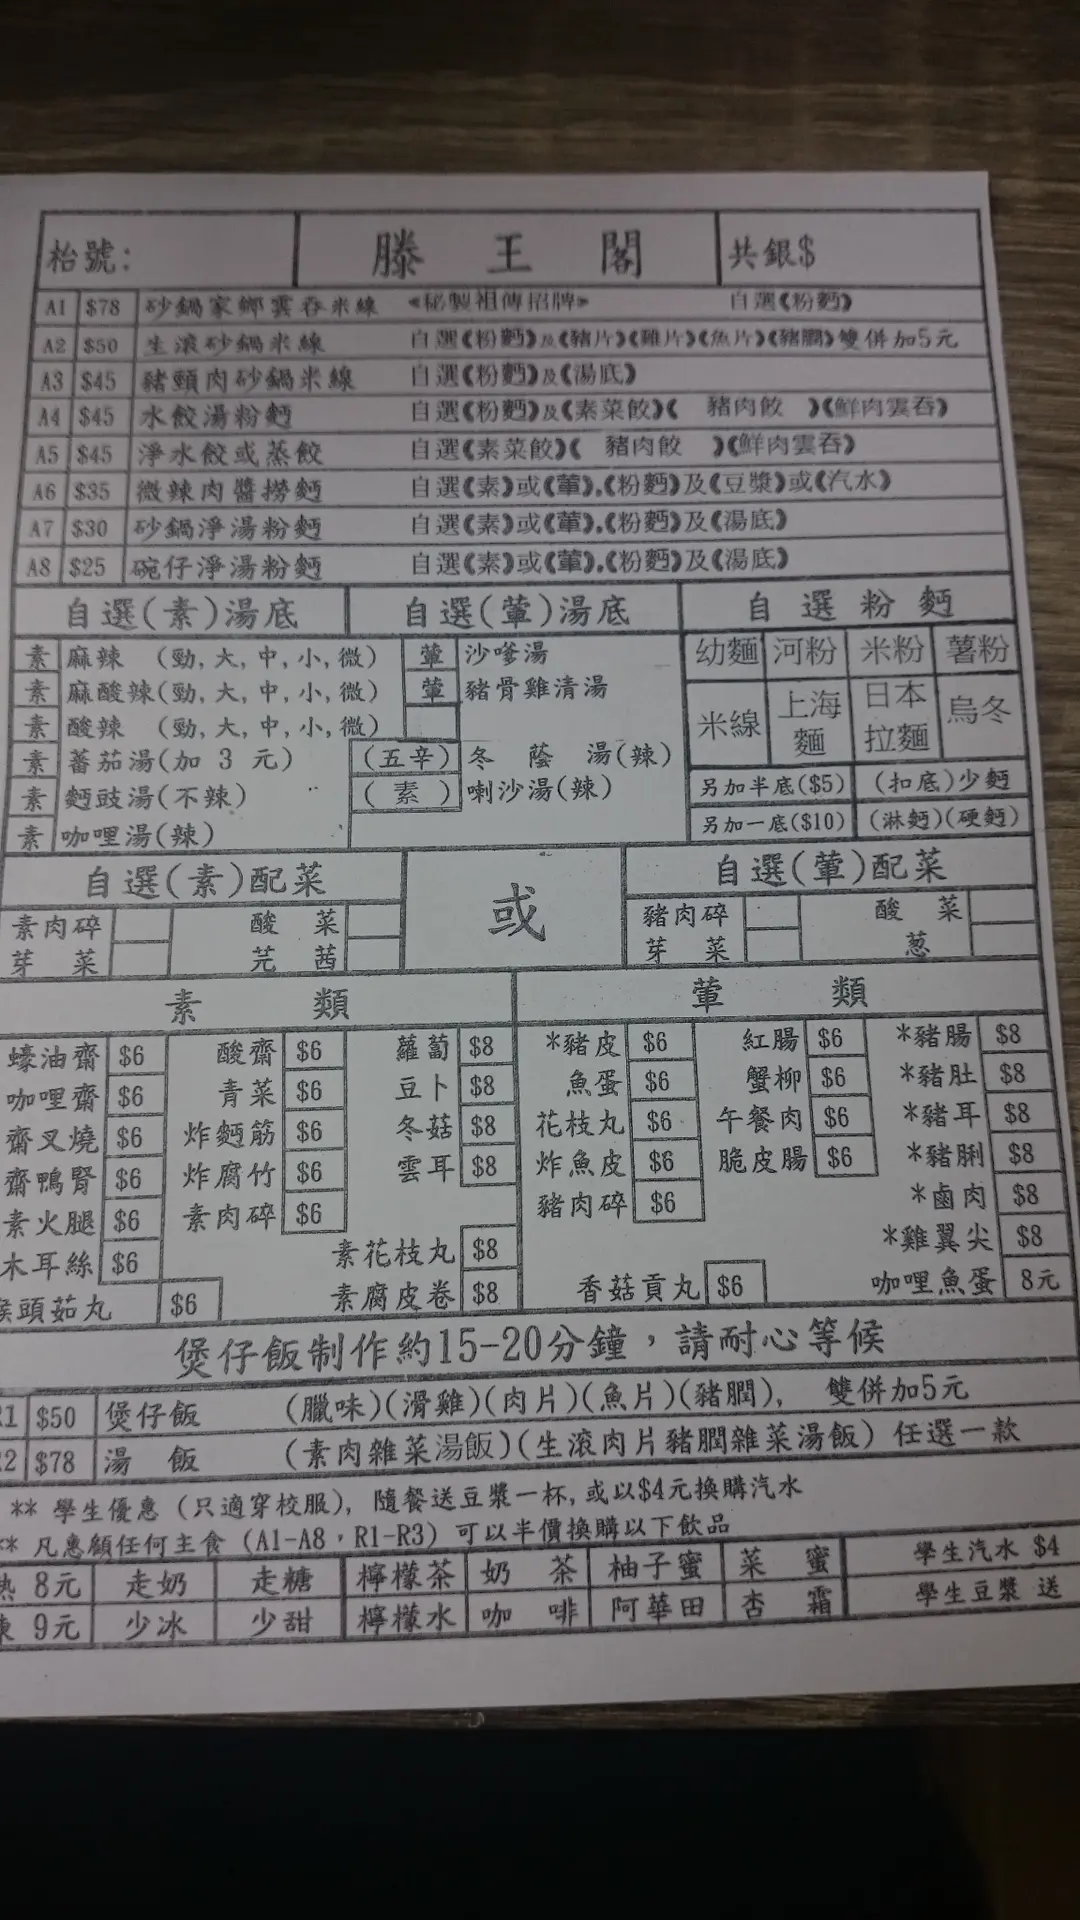 枱號: 滕 王 閣 共銀$
A1 $78 砂鍋家鄉雲吞米線 《秘製祖傳招牌》 自選《粉麪》
A2 $50 生滾砂鍋米線 自選《粉麪》及《豬片》《雞片》《魚片》《豬膶》雙併加5元
A3 $45 豬頸肉砂鍋米線 自選《粉麪》及《湯底》
A4 $45 水餃湯粉麪 自選《粉麪》及《素菜餃》《 豬肉餃 》《鮮肉雲吞》
A5 $45 淨水餃或蒸餃 自選《素菜餃》《 豬肉餃 》《鮮肉雲吞》
A6 $35 微辣肉醬撈麪 自選《素》或《葷》.《粉麪》及《豆漿》或《汽水》
A7 $30 砂鍋淨湯粉麪 自選《素》或《葷》.《粉麪》及《湯底》
A8 $25 碗仔淨湯粉麪 自選《素》或《葷》.《粉麪》及《湯底》
自選(素)湯底 自選(葷)湯底 自 選 粉 麪
素 麻辣 (勁,大,中,小,微) 葷 沙嗲湯 幼麵 河粉 米粉 薯粉
素 麻酸辣 (勁,大,中,小,微) 葷 豬骨雞清湯
素 酸辣 (勁,大,中,小,微) 米線 上海麵 日本拉麵 烏冬
素 蕃茄湯(加 3 元) (五辛) 冬 蔭 湯(辣)
素 麪豉湯(不辣) ( 素 ) 喇沙湯(辣) 另加半底($5) (扣底)少麪
素 咖哩湯(辣) 另加一底($10) (淋麪)(硬麪)
自選(素)配菜 或 自選(葷)配菜
素肉碎 酸 菜 豬肉碎 酸 菜
芽 菜 芫 茜 芽 菜 葱
素 類 葷 類
蠔油齋 $6 酸齋 $6 蘿蔔 $8 *豬皮 $6 紅腸 $6 *豬腸 $8
咖哩齋 $6 青菜 $6 豆卜 $8 魚蛋 $6 蟹柳 $6 *豬肚 $8
齋叉燒 $6 炸麪筋 $6 冬菇 $8 花枝丸 $6 午餐肉 $6 *豬耳 $8
齋鴨腎 $6 炸腐竹 $6 雲耳 $8 炸魚皮 $6 脆皮腸 $6 *豬脷 $8
素火腿 $6 素肉碎 $6 豬肉碎 $6 *鹵肉 $8
木耳絲 $6 素花枝丸 $8 *雞翼尖 $8
猴頭茹丸 $6 素腐皮卷 $8 香菇貢丸 $6 咖哩魚蛋 8元
煲仔飯制作約15-20分鐘，請耐心等候
R1 $50 煲仔飯 (臘味)(滑雞)(肉片)(魚片)(豬膶), 雙併加5元
R2 $78 湯 飯 (素肉雜菜湯飯)(生滾肉片豬膶雜菜湯飯) 任選一款
** 學生優惠 (只適穿校服), 隨餐送豆漿一杯,或以$4元換購汽水
** 凡惠顧任何主食 (A1-A8，R1-R3) 可以半價換購以下飲品
熱 8元 走奶 走糖 檸檬茶 奶 茶 柚子蜜 菜 蜜 學生汽水 $4
凍 9元 少冰 少甜 檸檬水 咖 啡 阿華田 杏 霜 學生豆漿 送